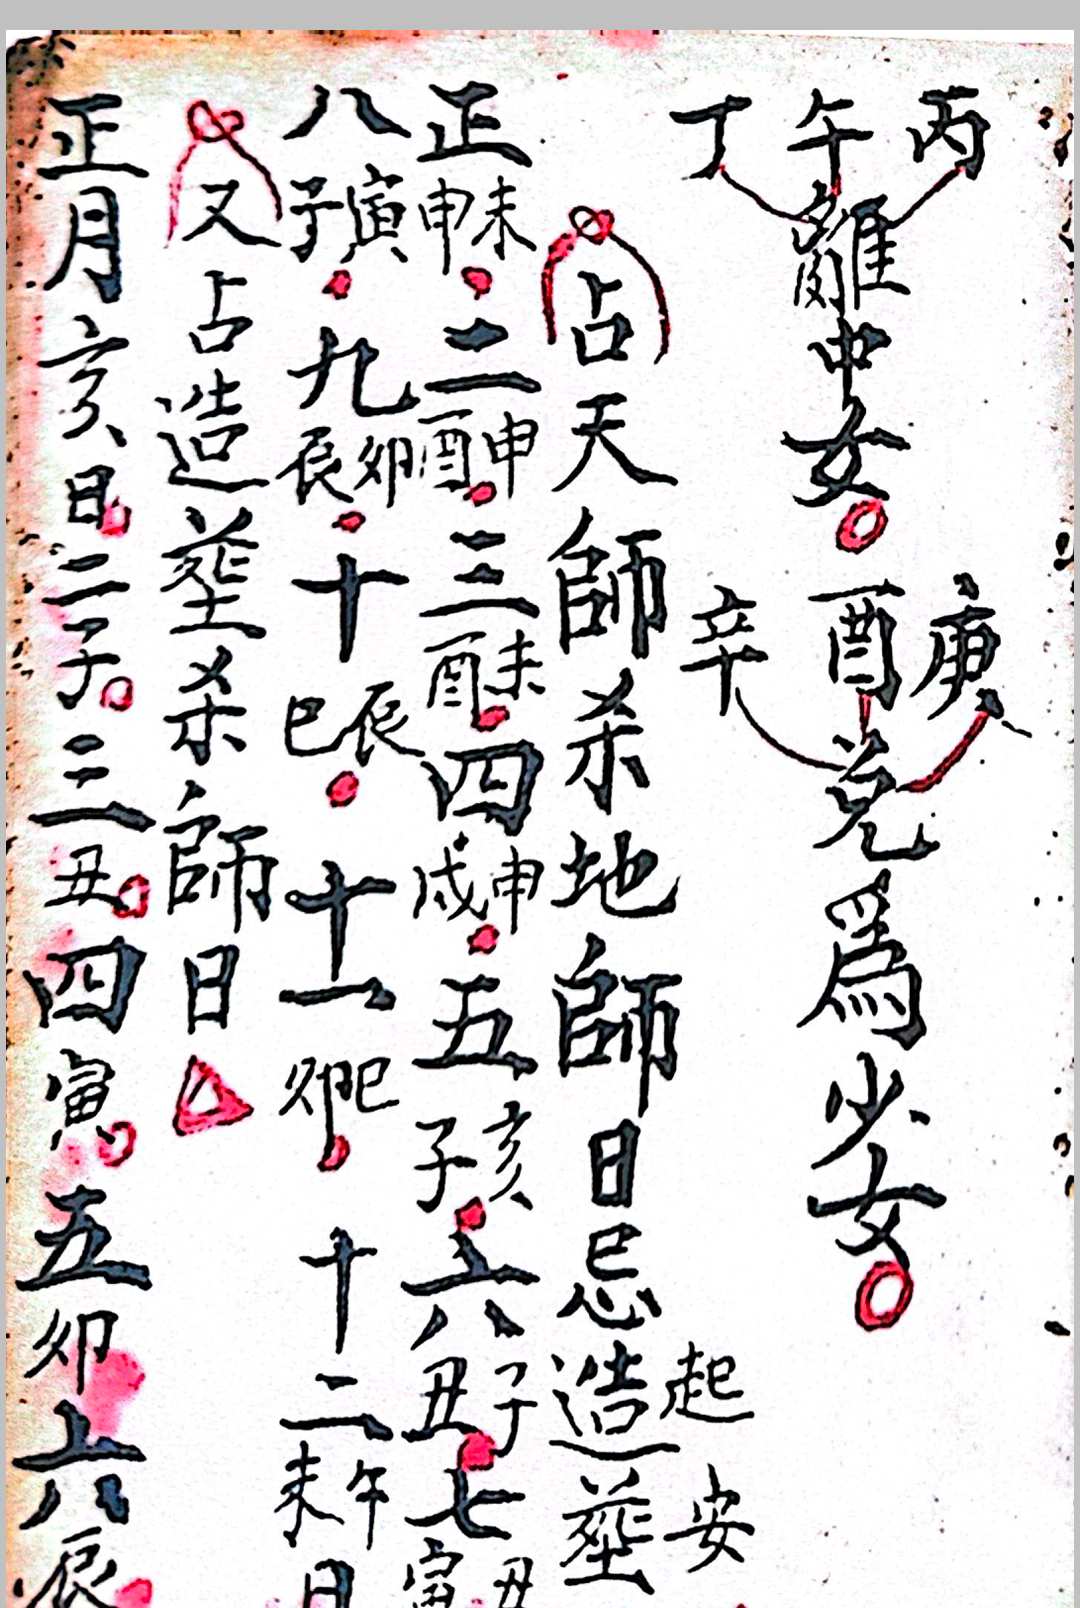 丙午丁離中女
庚酉辛兌爲少女
占天師杀地師日忌造塟
起安
正未申二申酉三未酉四申戌五亥子六子丑七丑寅
八寅子九卯辰十辰巳十一巳卯十二午未日
又占造塟杀師日
正月亥日二子三丑四寅五卯六辰